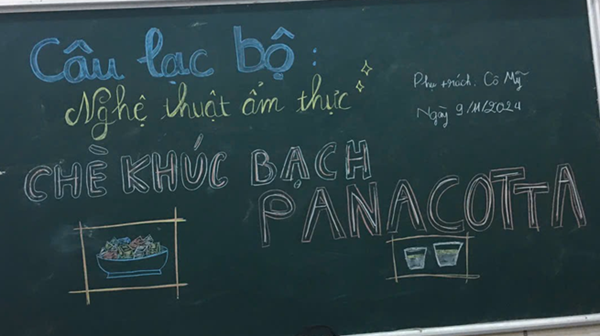 Câu lạc bộ :
Nghệ thuật ẩm thực
Phụ trách: Cô Mỹ
Ngày 9/11/2024
CHÈ KHÚC BẠCH
PANACOTTA